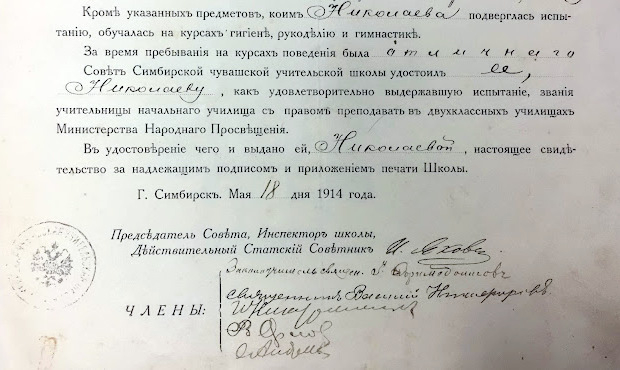 Кромѣ указанныхъ предметовъ, коимъ Николаева подверглась испы-
танію, обучалась на курсахъ гигіенѣ, рукодѣлію и гимнастикѣ.
За время пребыванія на курсахъ поведенія была отличнаго
Совѣтъ Симбирской чувашской учительской школы удостоилъ ее,
Николаеву, какъ удовлетворительно выдержавшую испытаніе, званія
учительницы начальнаго училища съ правомъ преподавать въ двухклассныхъ училищахъ
Министерства Народнаго Просвѣщенія.
Въ удостовѣреніе чего и выдано ей, Николаевой, настоящее свидѣ-
тельство за надлежащимъ подписомъ и приложеніемъ печати Школы.
Г. Симбирскъ. Мая 18 дня 1914 года.
Предсѣдатель Совѣта, Инспекторъ школы,
Дѣйствительный Статскій Совѣтникъ И. Яковл
Законоучитель священ.
ЧЛЕНЫ:
священникъ Василій Никифоровъ